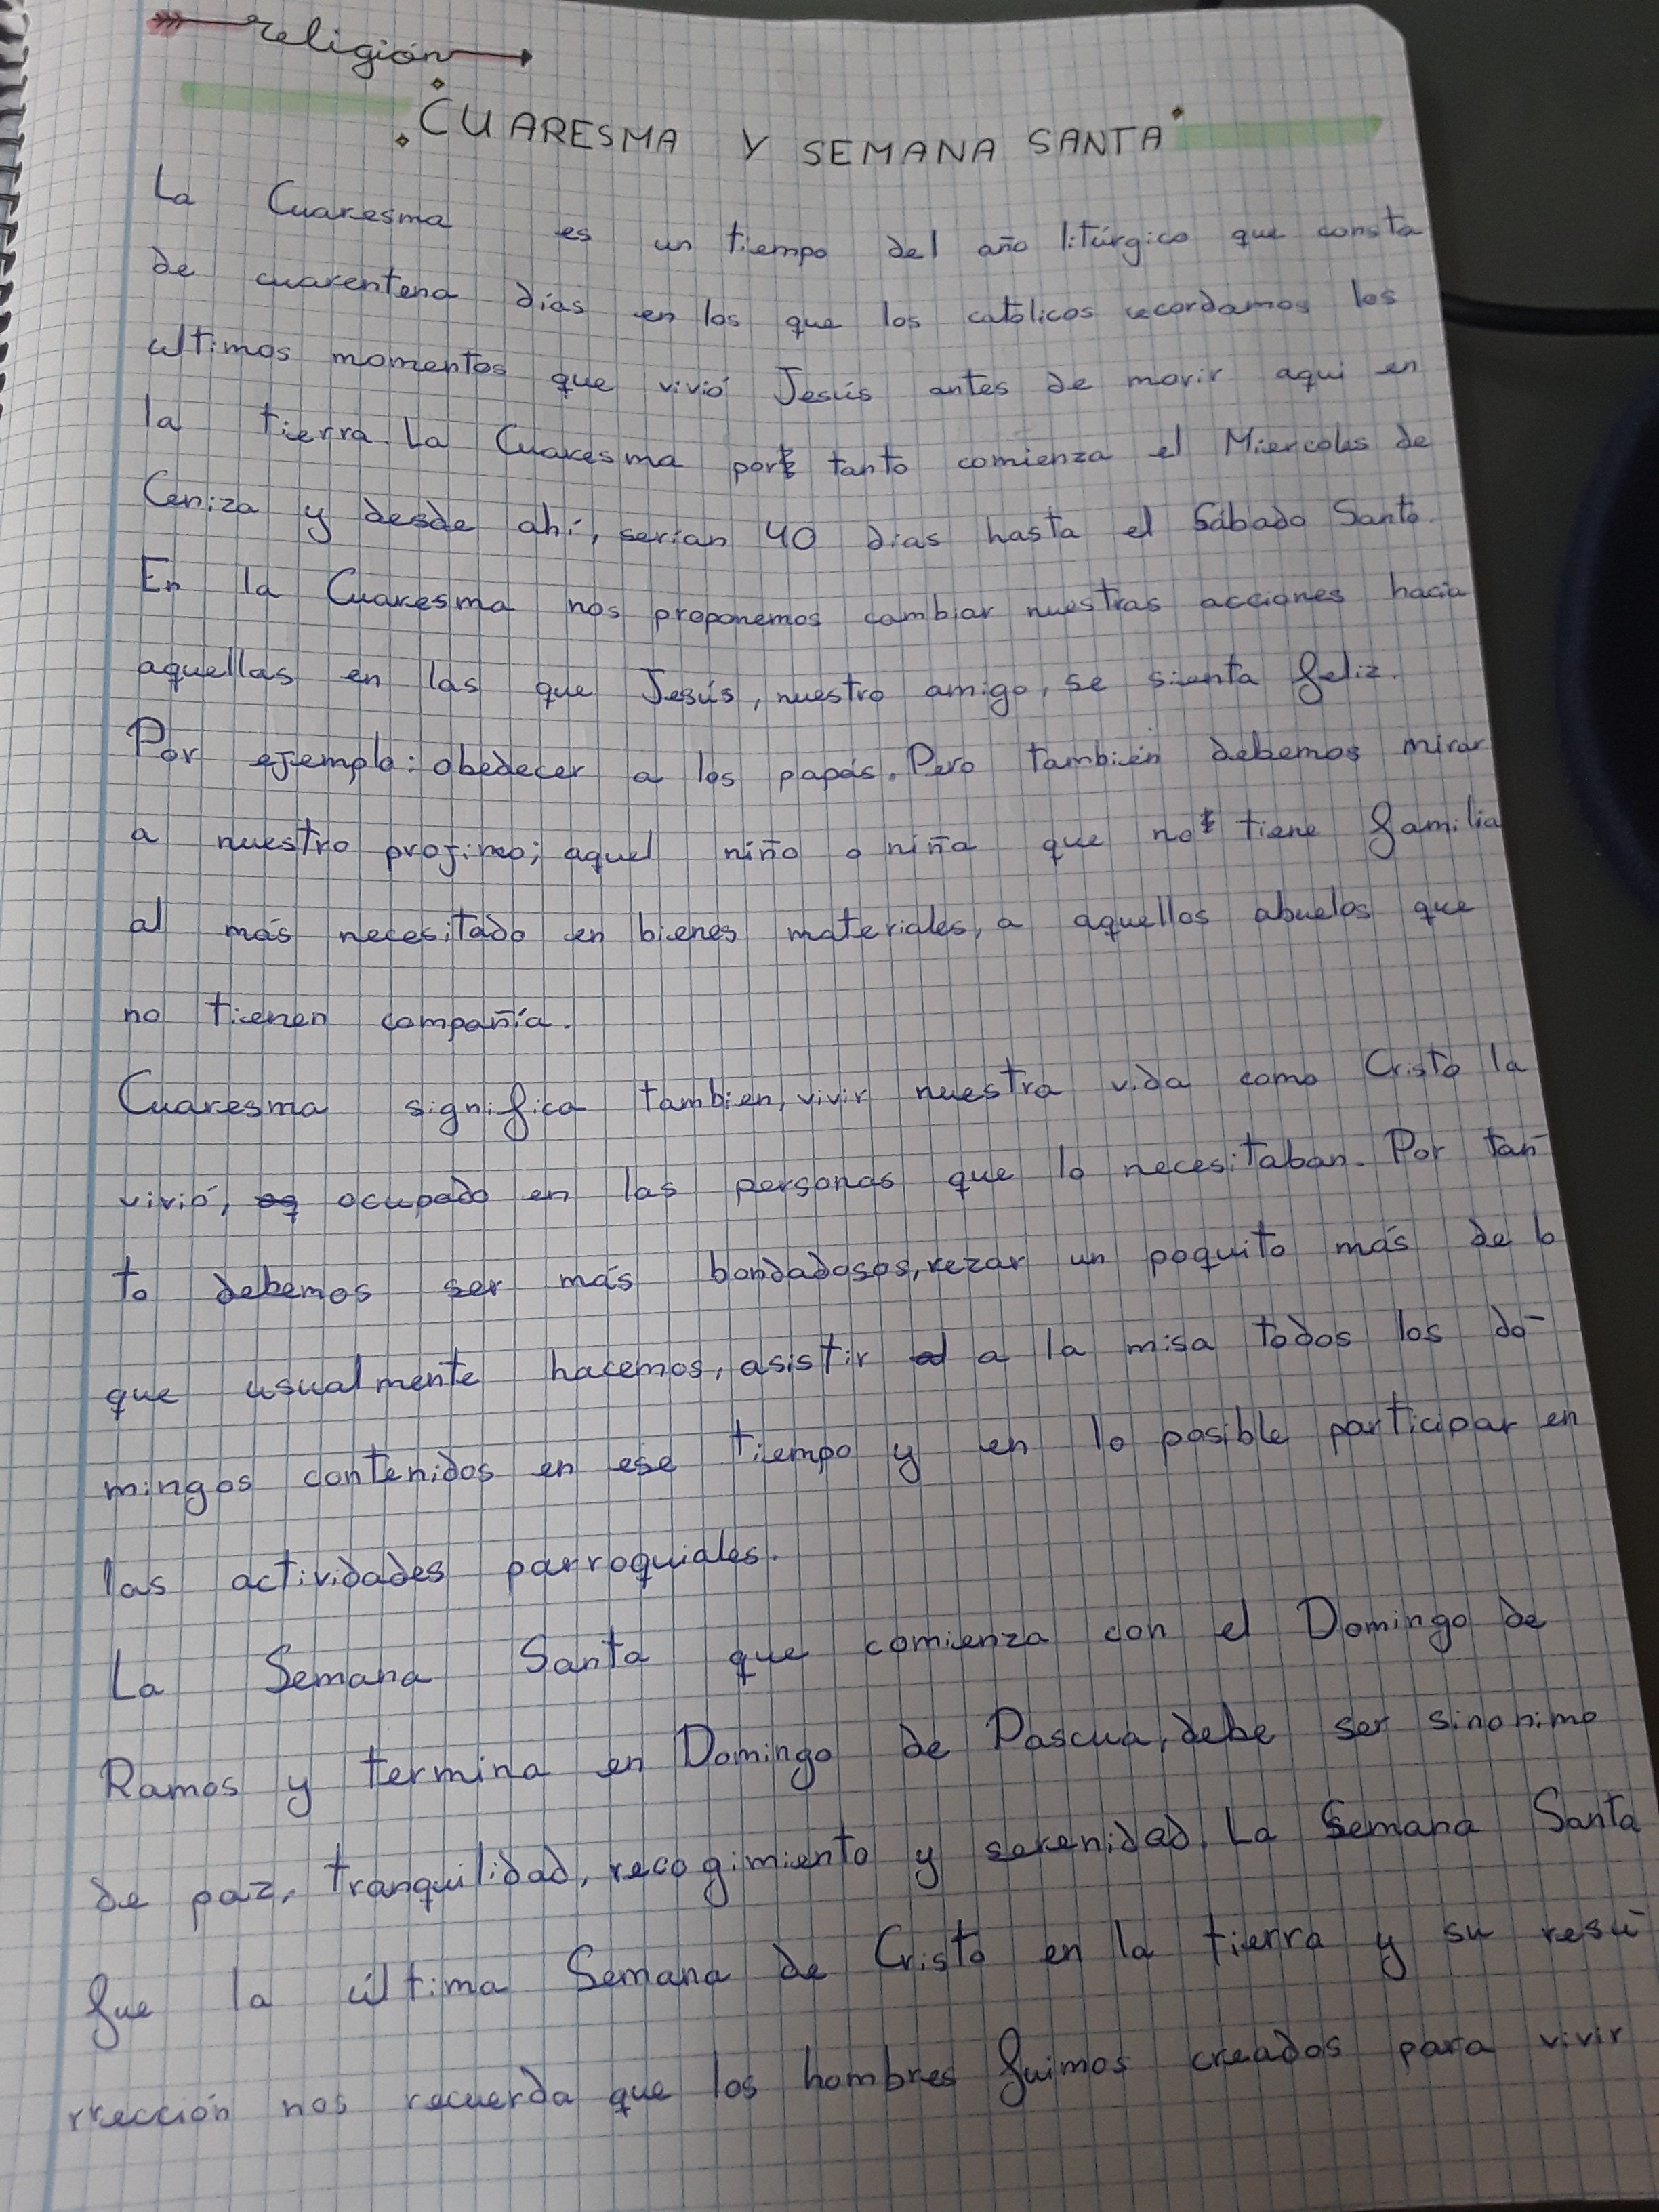 religión
CUARESMA Y SEMANA SANTA
La Cuaresma es un tiempo del año litúrgico que consta
de cuarentena días en los que los católicos recordamos los
ultimos momentos que vivió Jesús antes de morir aqui en
la tierra. La Cuaresma por tanto comienza el Miercoles de
Ceniza y desde ahí, serían 40 días hasta el Sábado Santo.
En la Cuaresma nos proponemos cambiar nuestras acciones hacia
aquellas en las que Jesús, nuestro amigo, se sienta feliz.
Por ejemplo: obedecer a los papás. Pero también debemos mirar
a nuestro projimo; aquel niño o niña que no tiene familia
al más necesitado en bienes materiales, a aquellos abuelos que
no tienen compañía.
Cuaresma significa tambien, vivir nuestra vida como Cristo la
vivió, ocupado en las personas que lo necesitaban. Por tan-
to debemos ser más bondadosos, rezar un poquito más de lo
que usualmente hacemos, asistir a la misa todos los do-
mingos contenidos en ese tiempo y en lo posible participar en
las actividades parroquiales.
La Semana Santa que comienza con el Domingo de
Ramos y termina en Domingo de Pascua, debe ser sinonimo
de paz, tranquilidad, recogimiento y serenidad. La Semana Santa
fue la última Semana de Cristo en la tierra y su resu-
rrección nos recuerda que los hombres fuimos creados para vivir